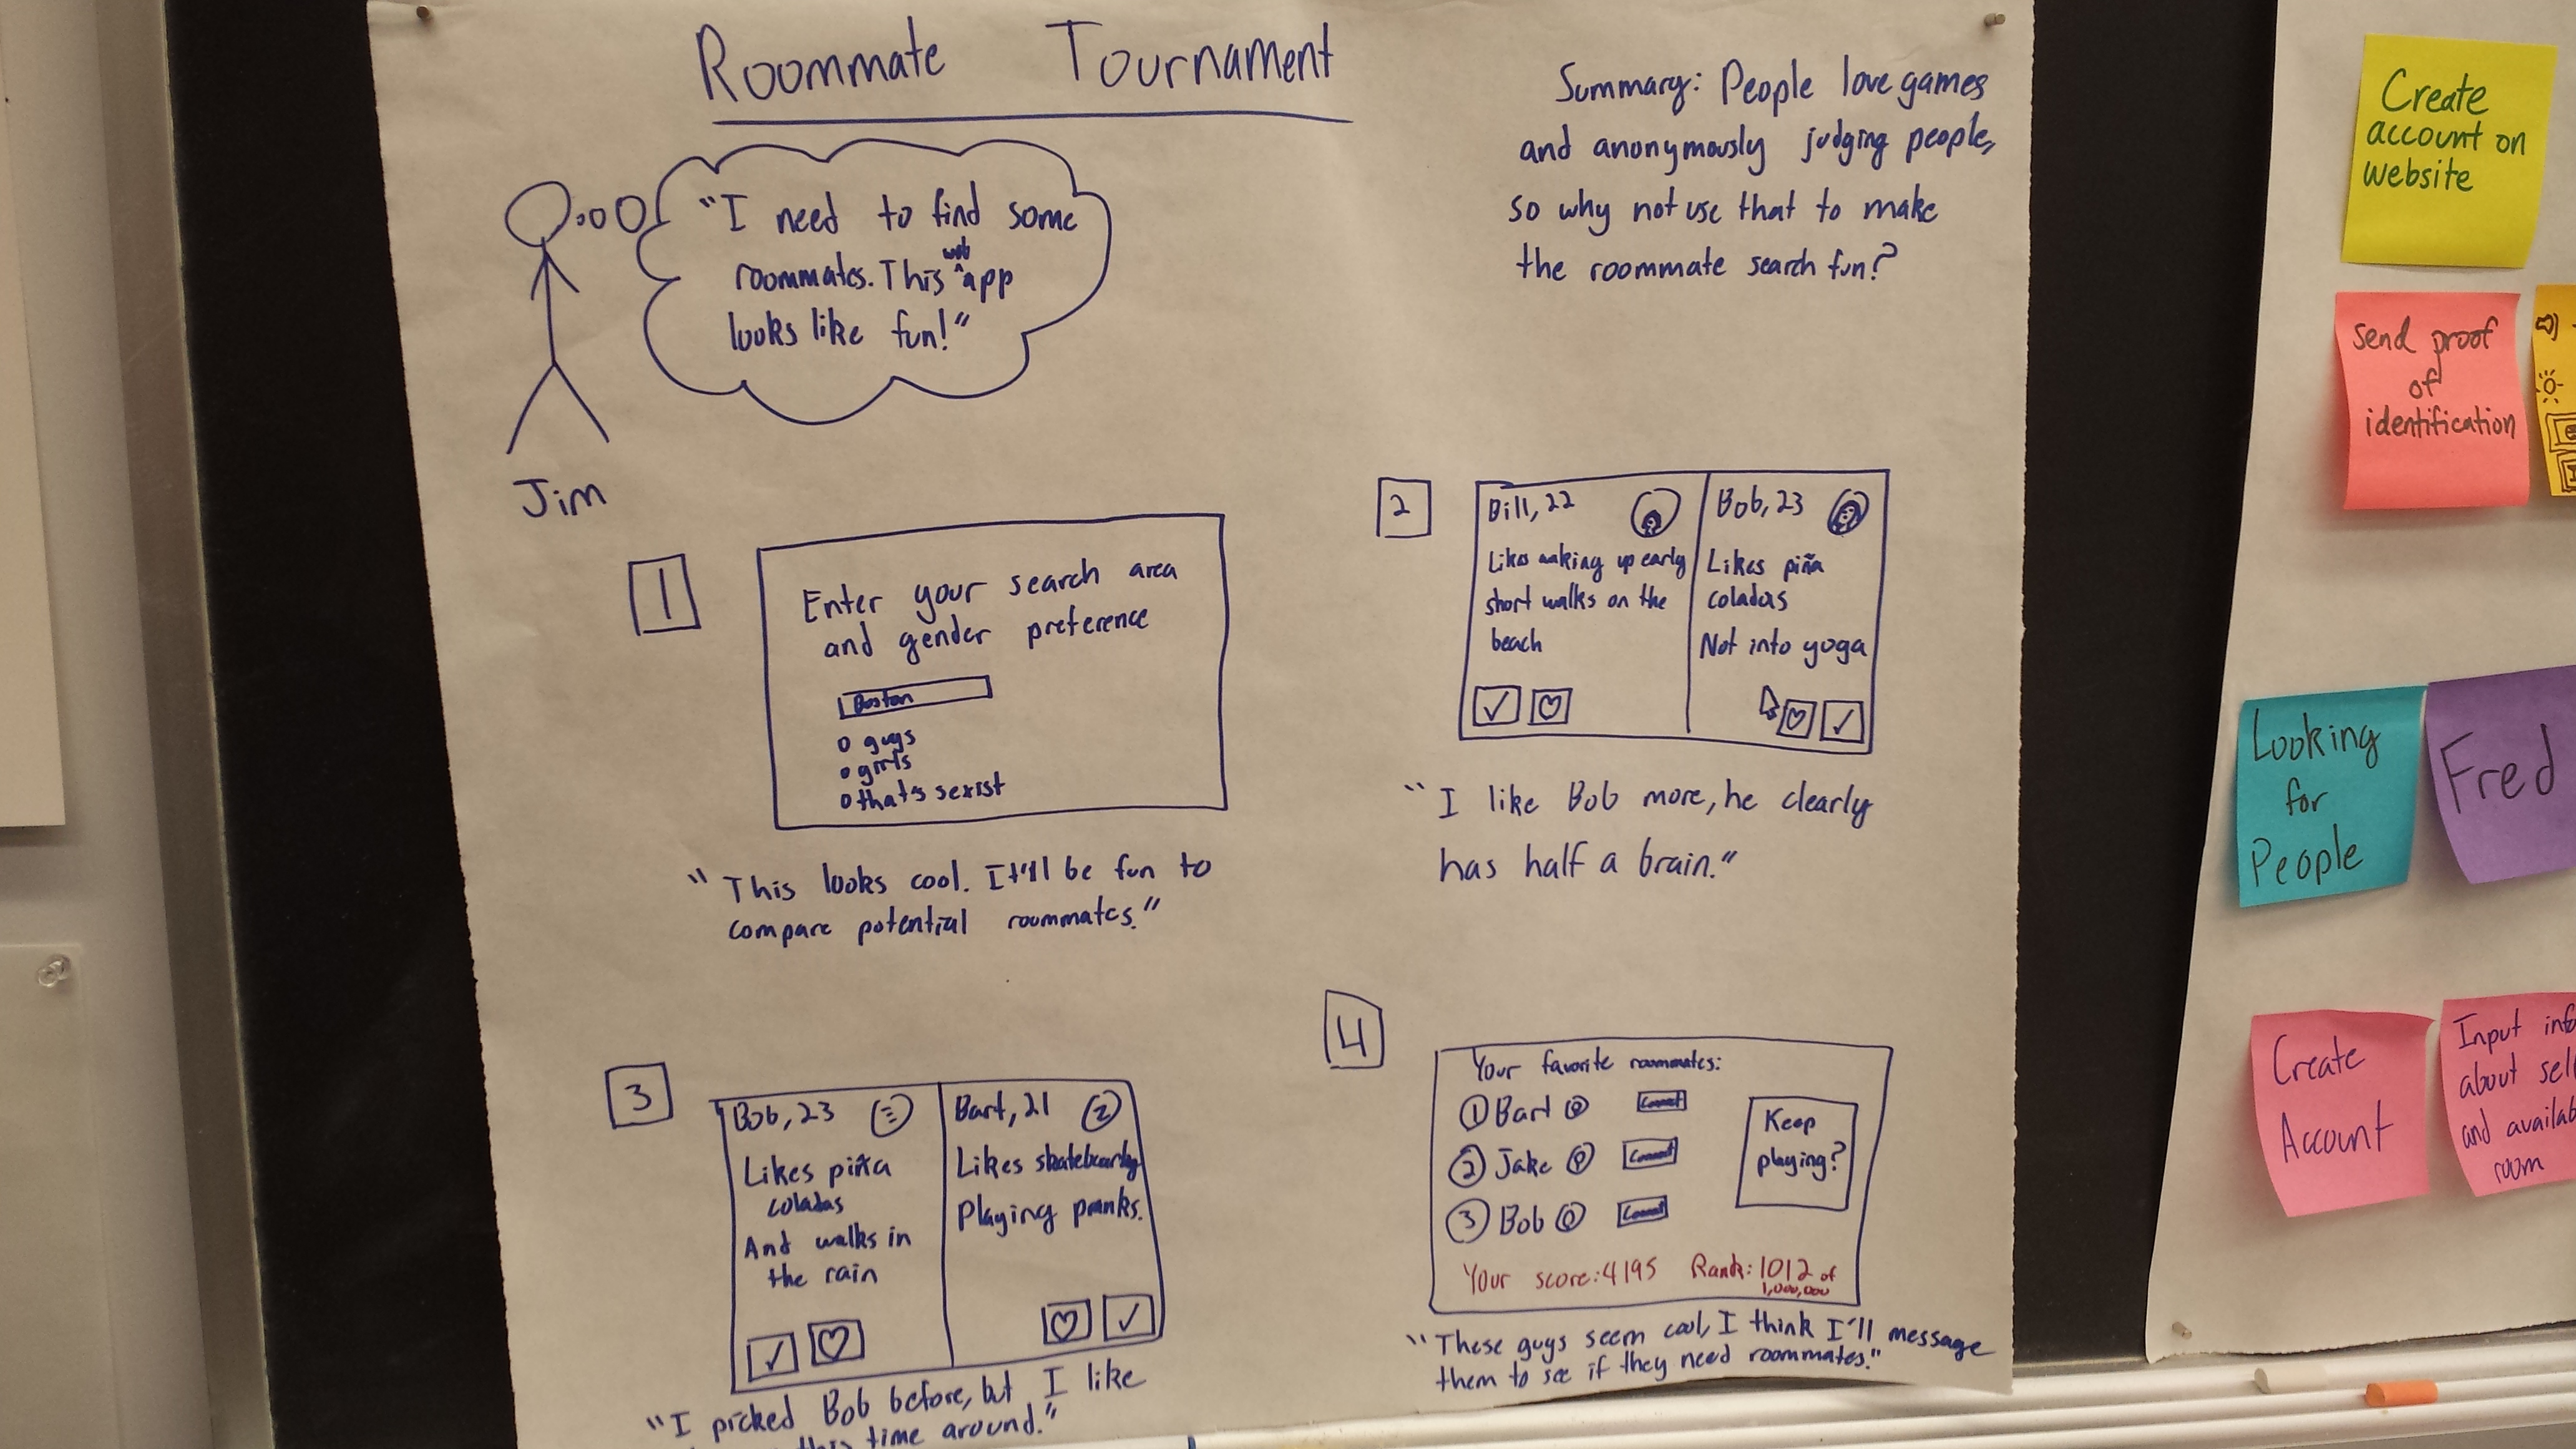 Roommate Tournament
Summary: People love games
and anonymously judging people,
so why not use that to make
the roommate search fun?
"I need to find some
roommates. This web app
looks like fun!"
Jim
1
Enter your search area
and gender preference
Boston
guys
girls
that's sexist
"This looks cool. It'll be fun to
compare potential roommates."
2
Bill, 22
Likes waking up early
short walks on the
beach
Bob, 23
Likes piña
coladas
Not into yoga
"I like Bob more, he clearly
has half a brain."
3
Bob, 23
Likes piña
coladas
And walks in
the rain
Bart, 21
Likes skateboarding
Playing pranks.
"I picked Bob before, but I like
this time around."
4
Your favorite roommates:
1 Bart
2 Jake
3 Bob
Keep
playing?
Your score: 4195 Rank: 1012 of
1,000,000
"These guys seem cool, I think I'll message
them to see if they need roommates."
Create
account on
website
Send proof
of
identification
Looking
for
People
Fred
Create
Account
Input info
about self
and
room